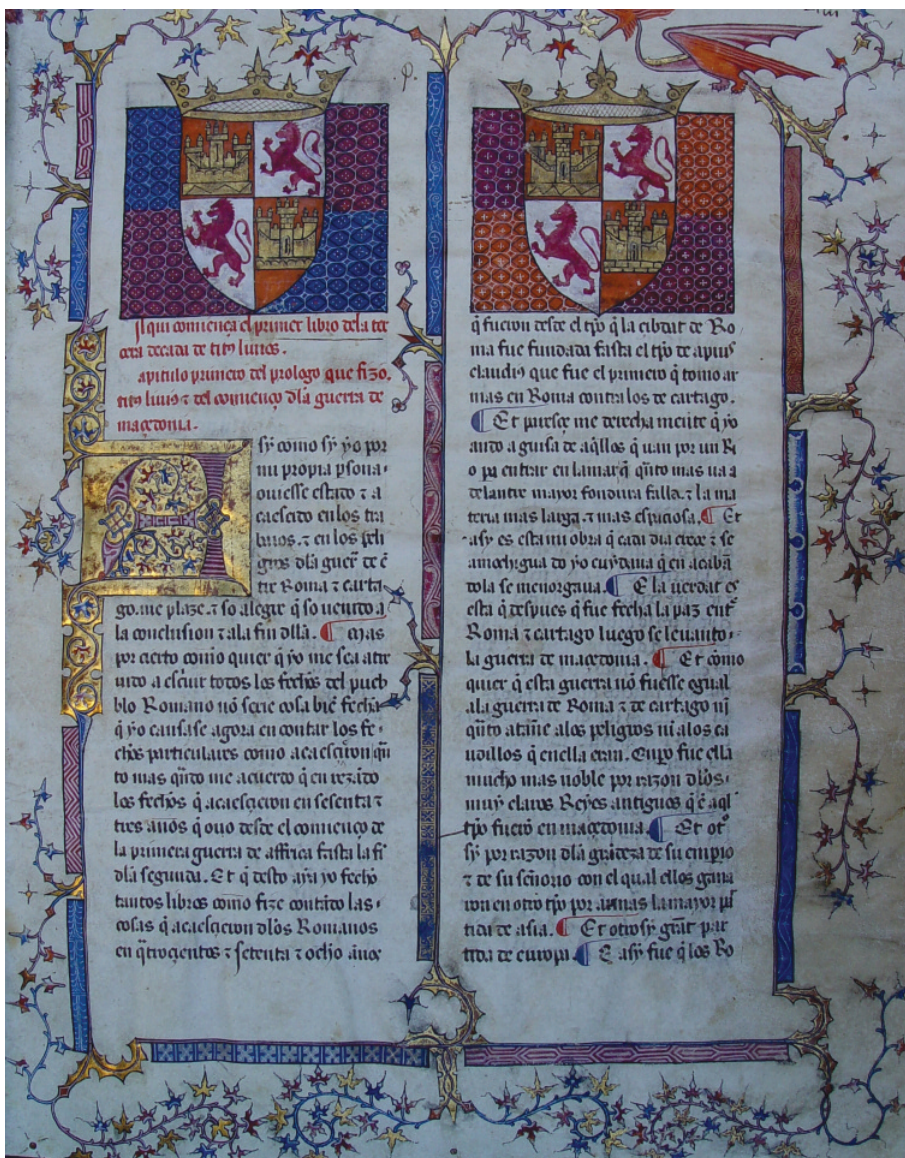 Aqui comiença el primer libro dela ter
cera decada de tito liuios.
apitulo primero del prologo que fizo.
tito liuio ⁊ del comienço dla guerra de
maçedonia.
Asy como sy yo por
mi propia psona
ouiesse estado ⁊ a
caescido en los tra
baios. ⁊ en los peli
gros dla guer̃ de ẽ
tre Roma ⁊ carta
go. me plaze. ⁊ so alegre q̃ so uenido a
la conclusion ⁊ ala fin dlla. Mas
por cierto como quier q̃ yo me sea atre
uido a escuir todos los fechos del pueb
blo Romano nõ serie cosa biẽ fecha
q̃ yo cansase agora en contar los fe
chos particulares como acaesçieron quã
to mas quãto me acuerdo q̃ en rezãdo
los fechos q̃ acaesçieron en sesenta ⁊
tres años q̃ ouo desde el comienço de
la primera guerra de affrica fasta la fĩ
dla segunda. Et q̃ desto aya yo fecho
tantos libros como fize contãdo las
cosas q̃ acaesçieron dlos Romanos
en q̃troçentos ⁊ setenta ⁊ ocho años
q̃ fueron desde el tp̃o q̃ la çibdat de Ro
ma fue fundada fasta el tp̃o de apius
claudius que fue el primero q̃ tomo ar
mas en Roma contra los de cartago.
Et paresçe me derecha mente q̃ yo
ando a guisa de aq̃llos q̃ uan por un Ri
o pa entrar en la mar q̃ quãto mas ua a
delante mayor fondura falla. ⁊ la ma
teria mas larga. ⁊ mas espaciosa. Et
asy es esta mi obra q̃ cada dia creçe ⁊ se
amochigua do yo cuydaua q̃ en acabã
dola se menorgaua. E la uerdat es
esta q̃ despues q̃ fue fecha la paz entr̃
Roma ⁊ cartago luego se leuanto
la guerra de maçedonia. Et como
quier q̃ esta guerra nõ fuesse egual
ala guerra de Roma ⁊ de cartago nĩ
quãto atañe alos peligros ni alos ca
udillos q̃ enella eran. Enp̃o fue ella
mucho mas noble por razon dlos
muy claros Reyes antiguos q̃ ẽ aq̃l
tp̃o fuerõ en maçedonia. Et ot̃
sy por razon dla grãdeza de su enp̃io
⁊ de su señorio con el qual ellos gana
ron en otro tp̃o por armas la mayor p̃
tida de asia. Et otrosy grãt par
tida de europa. E asy fue q̃ los Ro